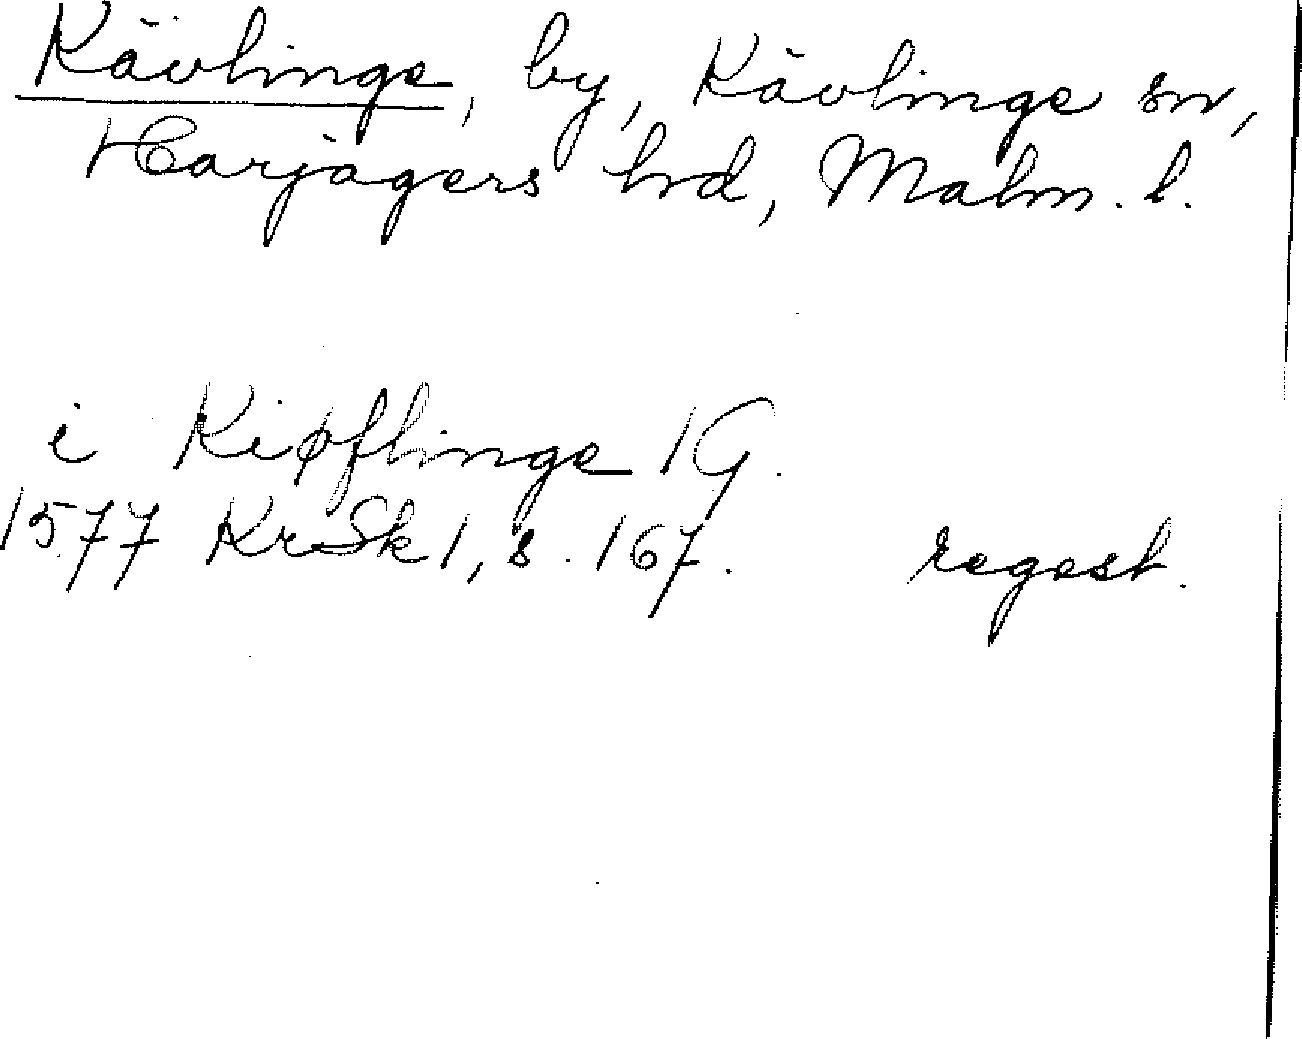 Kävlinge, by, Kävlinge sn,
Harjagers hd, Malm. l.
i Kiøflinge 1G.
1577 KrSk1, s. 167. regest.